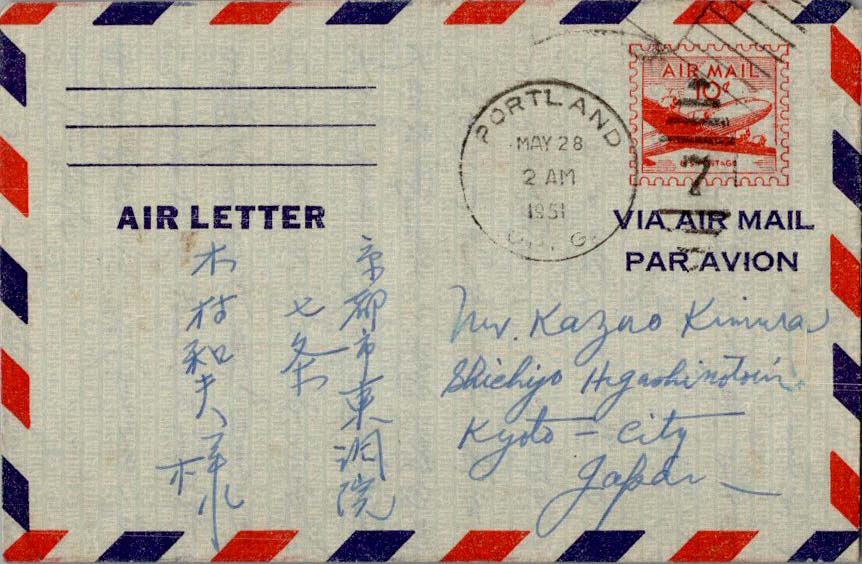 AIR MAIL
10¢
U.S. POSTAGE
PORTLAND
MAY 28
2 AM
1951
AIR LETTER
VIA AIR MAIL
PAR AVION
京都市東洞院
七条
木村和夫様
Mr. Kazuo Kimura
Shichijo Higashinotoin
Kyoto - City
Japan